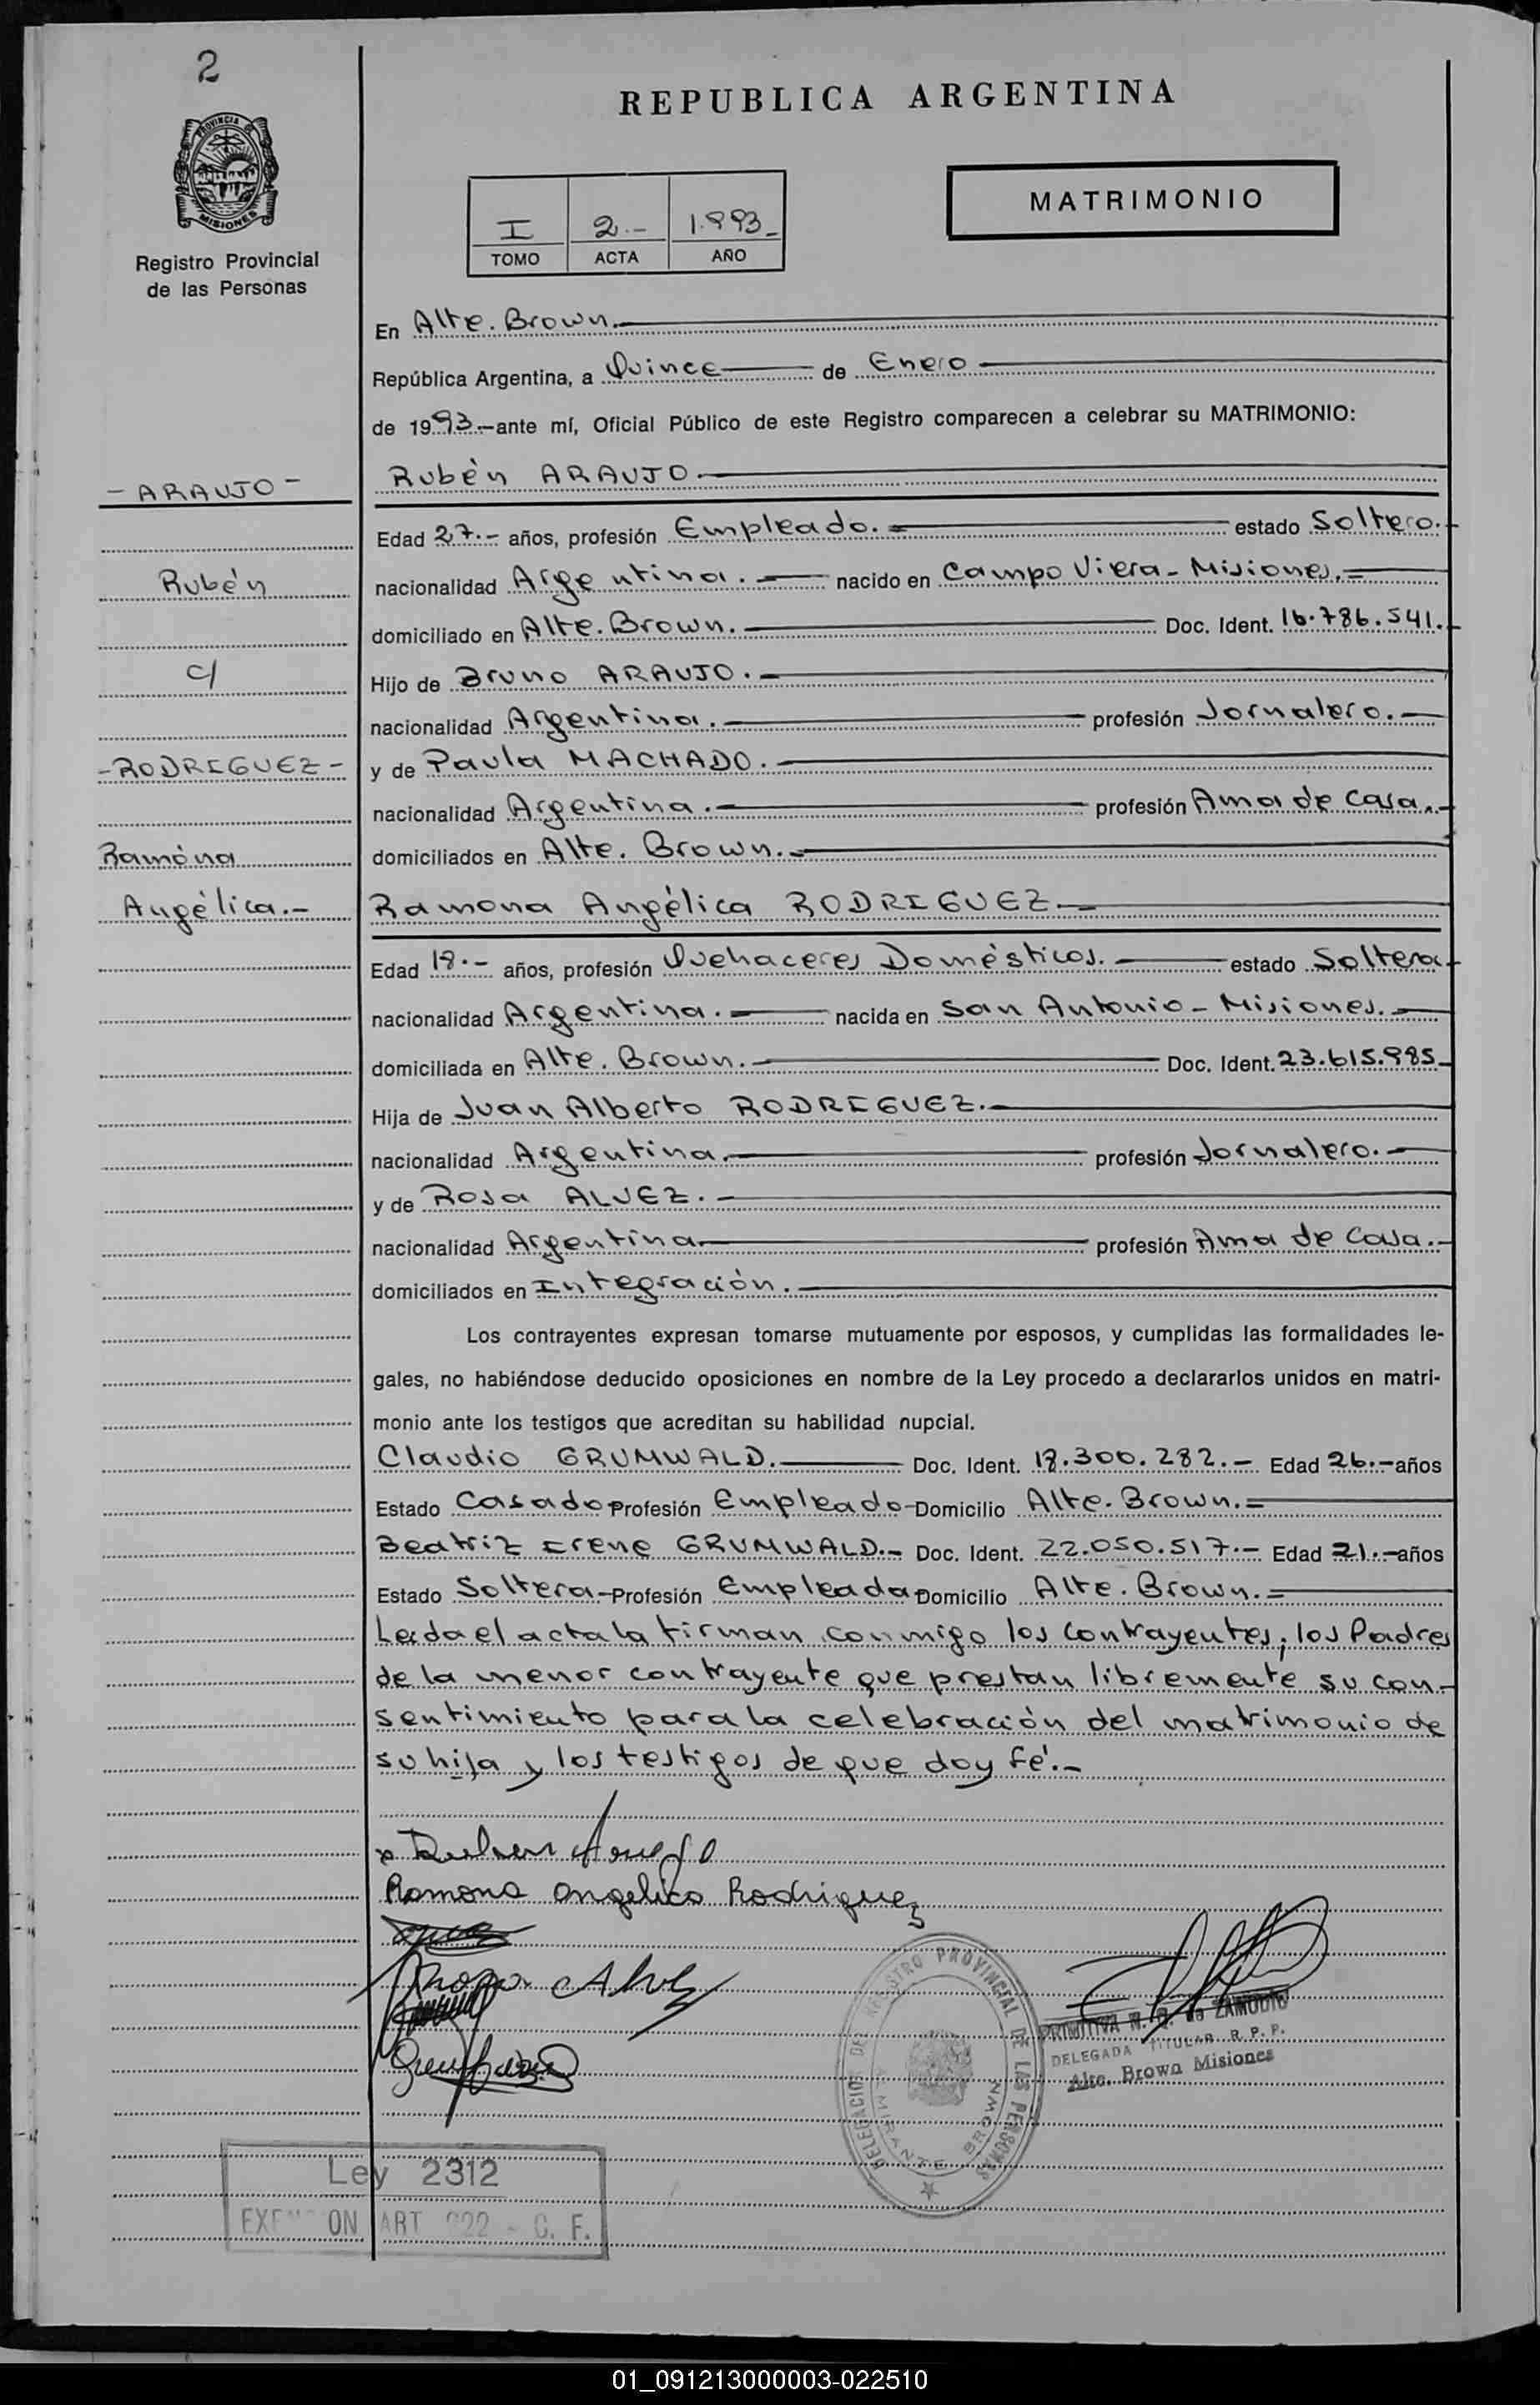 2
REPUBLICA ARGENTINA
PROVINCIA DE
MISIONES
Registro Provincial
de las Personas
MATRIMONIO
I 2.- 1.993_
TOMO ACTA AÑO
En Alte. Brown.
República Argentina, a Quince de Enero
de 1993.- ante mí, Oficial Público de este Registro comparecen a celebrar su MATRIMONIO:
- ARAUJO -
Rubén ARAUJO.
Edad 27.- años, profesión Empleado. estado Soltero.
Rubén
nacionalidad Argentina. nacido en Campo Viera - Misiones.
domiciliado en Alte. Brown. Doc. Ident. 16.786.541.
c/
Hijo de Bruno ARAUJO.
nacionalidad Argentina. profesión Jornalero.
- RODRIGUEZ -
y de Paula MACHADO.
nacionalidad Argentina. profesión Ama de Casa.
Ramóna
domiciliados en Alte. Brown.
Angélica.-
Ramona Angélica RODRIGUEZ
Edad 18.- años, profesión Quehaceres Domésticos. estado Soltera
nacionalidad Argentina. nacida en San Antonio - Misiones.
domiciliada en Alte. Brown. Doc. Ident. 23.615.985
Hija de Juan Alberto RODRIGUEZ.
nacionalidad Argentina. profesión Jornalero.
y de Rosa ALVEZ.
nacionalidad Argentina. profesión Ama de Casa.
domiciliados en Integración.
Los contrayentes expresan tomarse mutuamente por esposos, y cumplidas las formalidades le-
gales, no habiéndose deducido oposiciones en nombre de la Ley procedo a declararlos unidos en matri-
monio ante los testigos que acreditan su habilidad nupcial.
Claudio GRUMWALD. Doc. Ident. 18.300.282.- Edad 26.- años
Estado Casado Profesión Empleado Domicilio Alte. Brown.
Beatriz Irene GRUMWALD.- Doc. Ident. 22.050.517.- Edad 21.- años
Estado Soltera Profesión Empleada Domicilio Alte. Brown.
Leida el acta la firman conmigo los contrayentes, los Padres
de la menor contrayente que prestan libremente su con-
sentimiento para la celebración del matrimonio de
su hija y los testigos de que doy fé.-
x Ruben Araujo
Ramona Angelica Rodriguez
Rosa Alvez
DELEGACION DEL REGISTRO PROVINCIAL DE LAS PERSONAS
ALMIRANTE BROWN
PRIMITIVA ZAMUDIO
DELEGADA TITULAR R. P. P.
Alte. Brown Misiones
Ley 2312
EXENCION ART 222 - C. F.
01_091213000003-022510